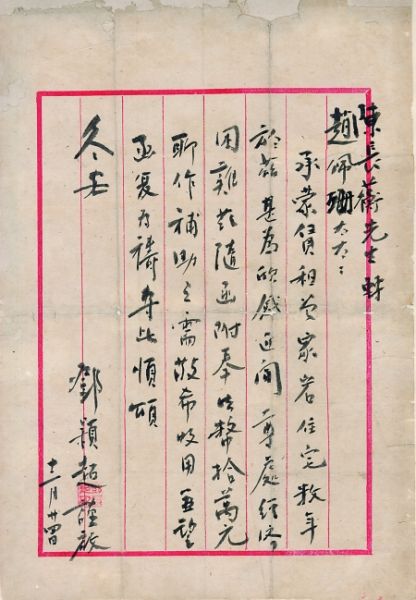 陳長蘅先生
趙佩珊太太:
承蒙賃租曾家岩住宅數年
於茲甚為欣感近聞尊處經濟
困難茲隨函附奉法幣拾萬元
聊作補助之需敬希收用並望
函复為禱專此順頌
冬安
鄧穎超謹啟
十二月廿四日